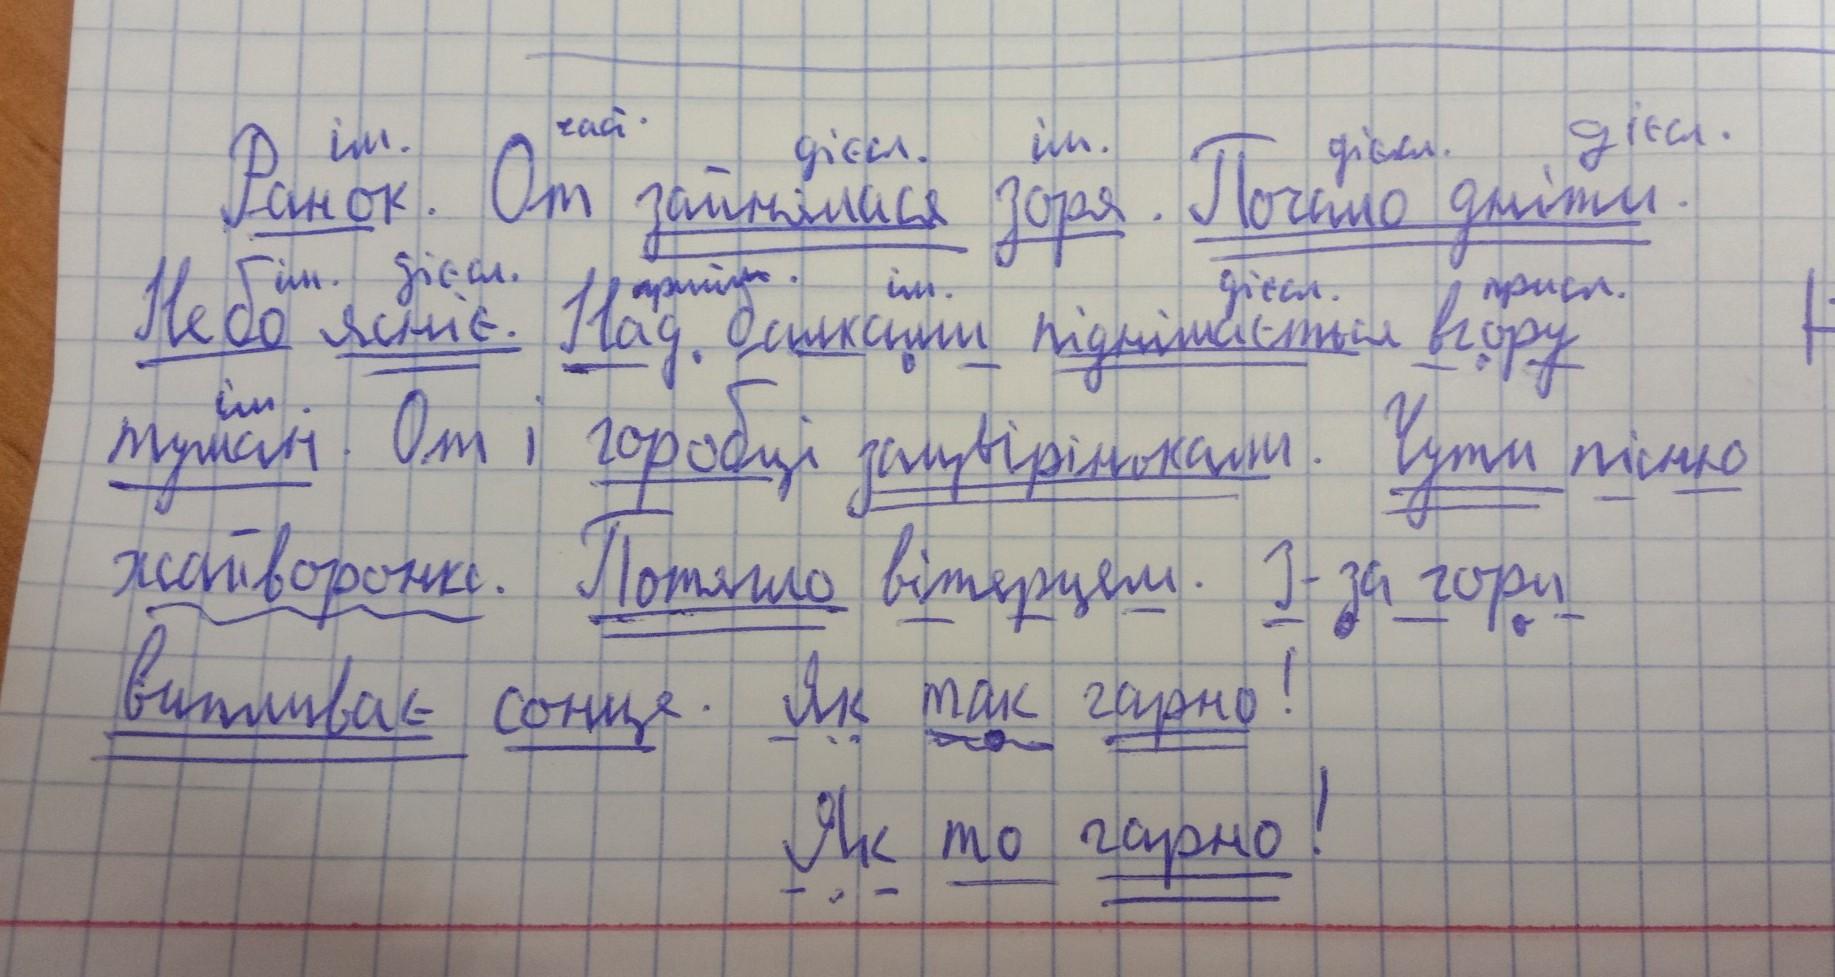 ім. част. дієсл. ім. дієсл. дієсл.
Ранок. От зайнялася зоря. Почало дніти.
ім. дієсл. прийм. ім. дієсл. присл.
Небо ясніє. Над балками піднімається вгору
ім.
туман. От і горобці зацвірінькали. Чути пісню
жайворонка. Потягло вітерцем. З-за гори
випливає сонце. Як так гарно!
Як то гарно!